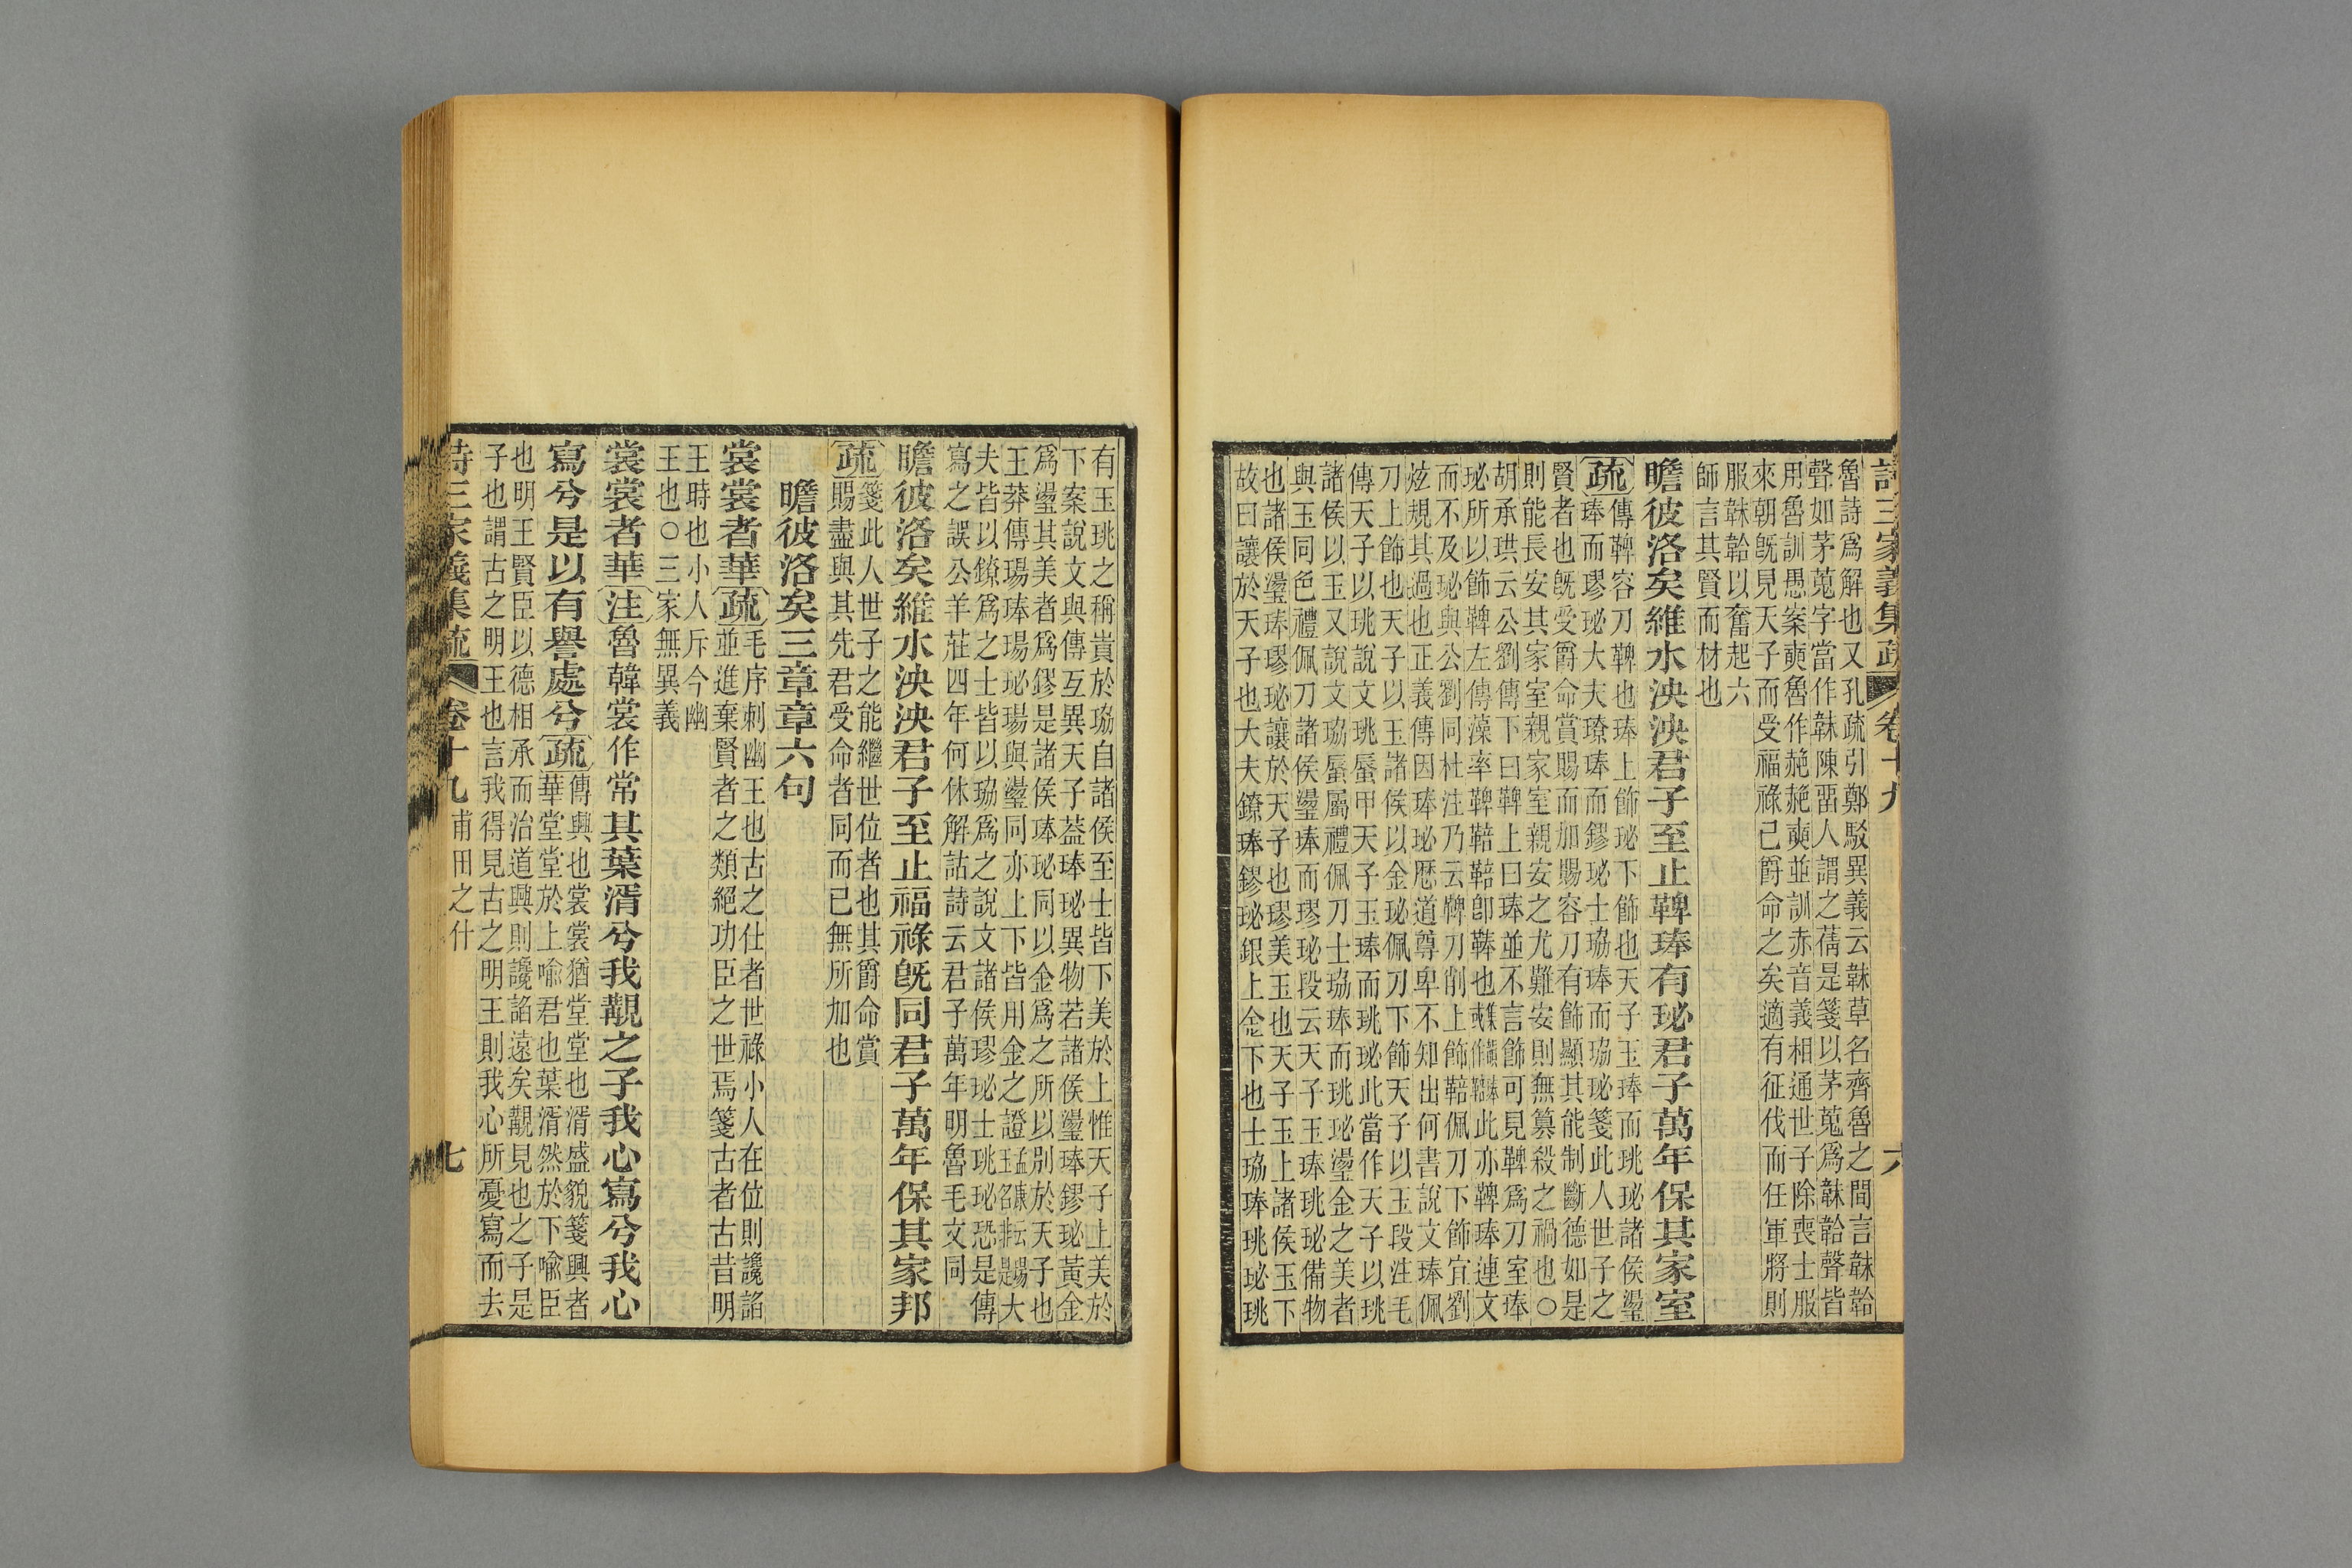 詩三家義集疏 卷十九 六
魯詩爲解也又孔疏引鄭駁異義云韎草名齊魯之間言韎韐
聲如茅蒐字當作韎陳畱人謂之蒨是箋以茅蒐爲韎韐聲皆
用魯訓愚案奭魯作赩赩奭並訓赤音義相通世子除喪士服
來朝旣見天子而受福祿已爵命之矣適有征伐而任軍將則
服韎韐以奮起六
師言其賢而材也
瞻彼洛矣維水泱泱君子至止鞞琫有珌君子萬年保其家室
疏 傳鞞容刀鞞也琫上飾珌下飾也天子玉琫而珧珌諸侯璗
琫而璆珌大夫璙琫而鏐珌士珕琫而珕珌箋此人世子之
賢者也旣受爵命賞賜而加賜容刀有飾顯其能制斷德如是
則能長安其家室親家室親安之尤難安則無篡殺之禍也○
胡承珙云公劉傳下曰鞞上曰琫並不言飾可見鞞爲刀室琫
珌所以飾鞞左傳藻率鞞鞛鞛卽琫也此亦鞞琫連文
而不及珌與公劉同杜注乃云鞞刀削上飾鞛佩刀下飾宜劉
炫規其過也正義傳因琫珌歷道尊卑不知出何書說文琫佩
刀上飾也天子以玉諸侯以金珌佩刀下飾天子以玉段注毛
傳天子以珧說文珧蜃甲天子玉琫而珧珌此當作天子以珧
諸侯以玉又說文珕蜃屬禮佩刀士珕琫而珧珌璗金之美者
與玉同色禮佩刀諸侯璗琫而璆珌段云天子玉琫珧珌備物
也諸侯璗琫璆珌讓於天子也璆美玉也天子玉上諸侯玉下
故曰讓於天子也大夫鐐琫鏐珌銀上金下也士珕琫珧珌珧
有玉珧之稱貴於珕自諸侯至士皆下美於上惟天子上美於
下案說文與傳互異天子葢琫珌異物若諸侯璗琫鏐珌黃金
爲璗其美者爲鏐是諸侯琫珌同以金爲之所以別於天子也
王莽傳瑒琫瑒珌瑒與璗同亦上下皆用金之證孟康云非瑒大
夫皆以鐐爲之士皆以珕爲之說文諸侯璆珌士珧珌恐是傳
寫之誤公羊莊四年何休解詁詩云君子萬年明魯毛文同
瞻彼洛矣維水泱泱君子至止福祿旣同君子萬年保其家邦
疏 箋此人世子之能繼世位者也其爵命賞
賜盡與其先君受命者同而已無所加也
瞻彼洛矣三章章六句
裳裳者華 疏 毛序刺幽王也古之仕者世祿小人在位則讒諂
並進棄賢者之類絕功臣之世焉箋古者古昔明
王時也小人斥今幽
王也○三家無異義
裳裳者華 注 魯韓裳作常其葉湑兮我覯之子我心寫兮我心
寫兮是以有譽處兮 疏 傳興也裳裳猶堂堂也湑盛貌箋興者
華堂堂於上喻君也葉湑然於下喻臣
也明王賢臣以德相承而治道興則讒諂遠矣覯見也之子是
子也謂古之明王也言我得見古之明王則我心所憂寫而去
詩三家義集疏 卷十九 甫田之什 七